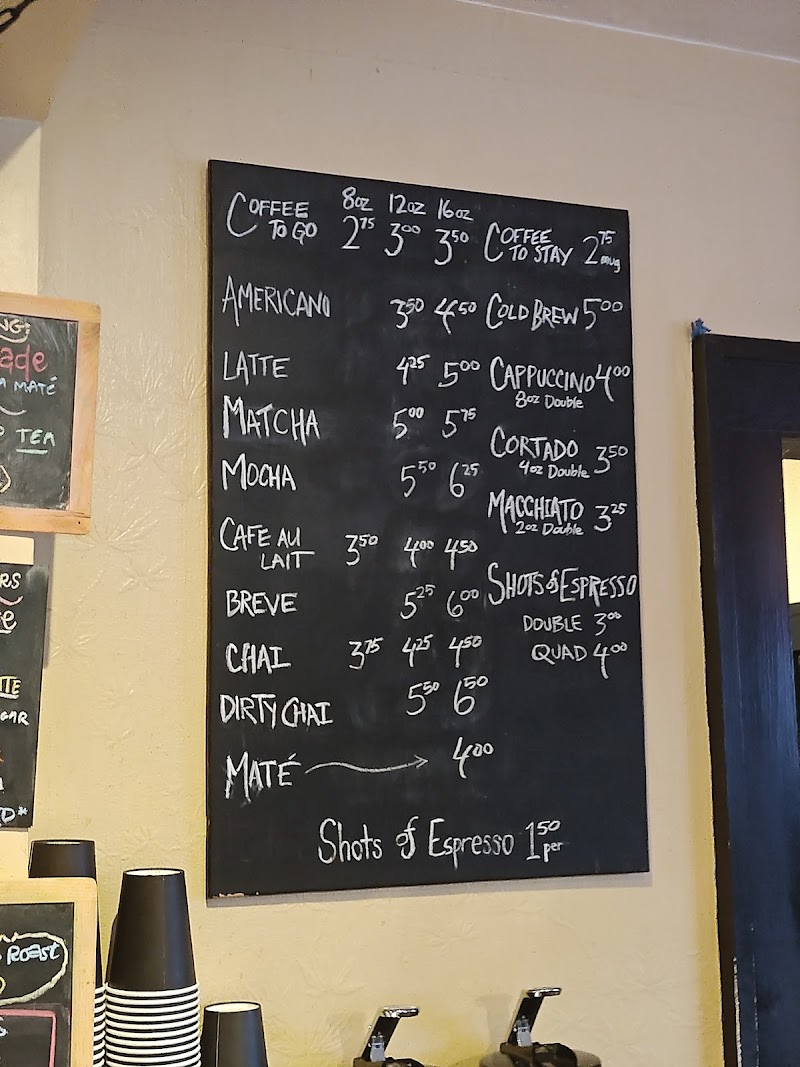 8oz 12oz 16oz
COFFEE TO GO 2.75 3.00 3.50
AMERICANO 3.50 4.50
LATTE 4.25 5.00
MATCHA 5.00 5.75
MOCHA 5.50 6.25
CAFE AU LAIT 3.50 4.00 4.50
BREVE 5.25 6.00
CHAI 3.75 4.25 4.50
DIRTY CHAI 5.50 6.50
MATÉ → 4.00
COFFEE TO STAY 2.75 mug
COLD BREW 5.00
CAPPUCCINO 4.00
8oz Double
CORTADO 3.50
4oz Double
MACCHIATO 3.25
2oz Double
SHOTS of ESPRESSO
DOUBLE 3.00
QUAD 4.00
Shots of Espresso 1.50 per
MATÉ
TEA
ROAST